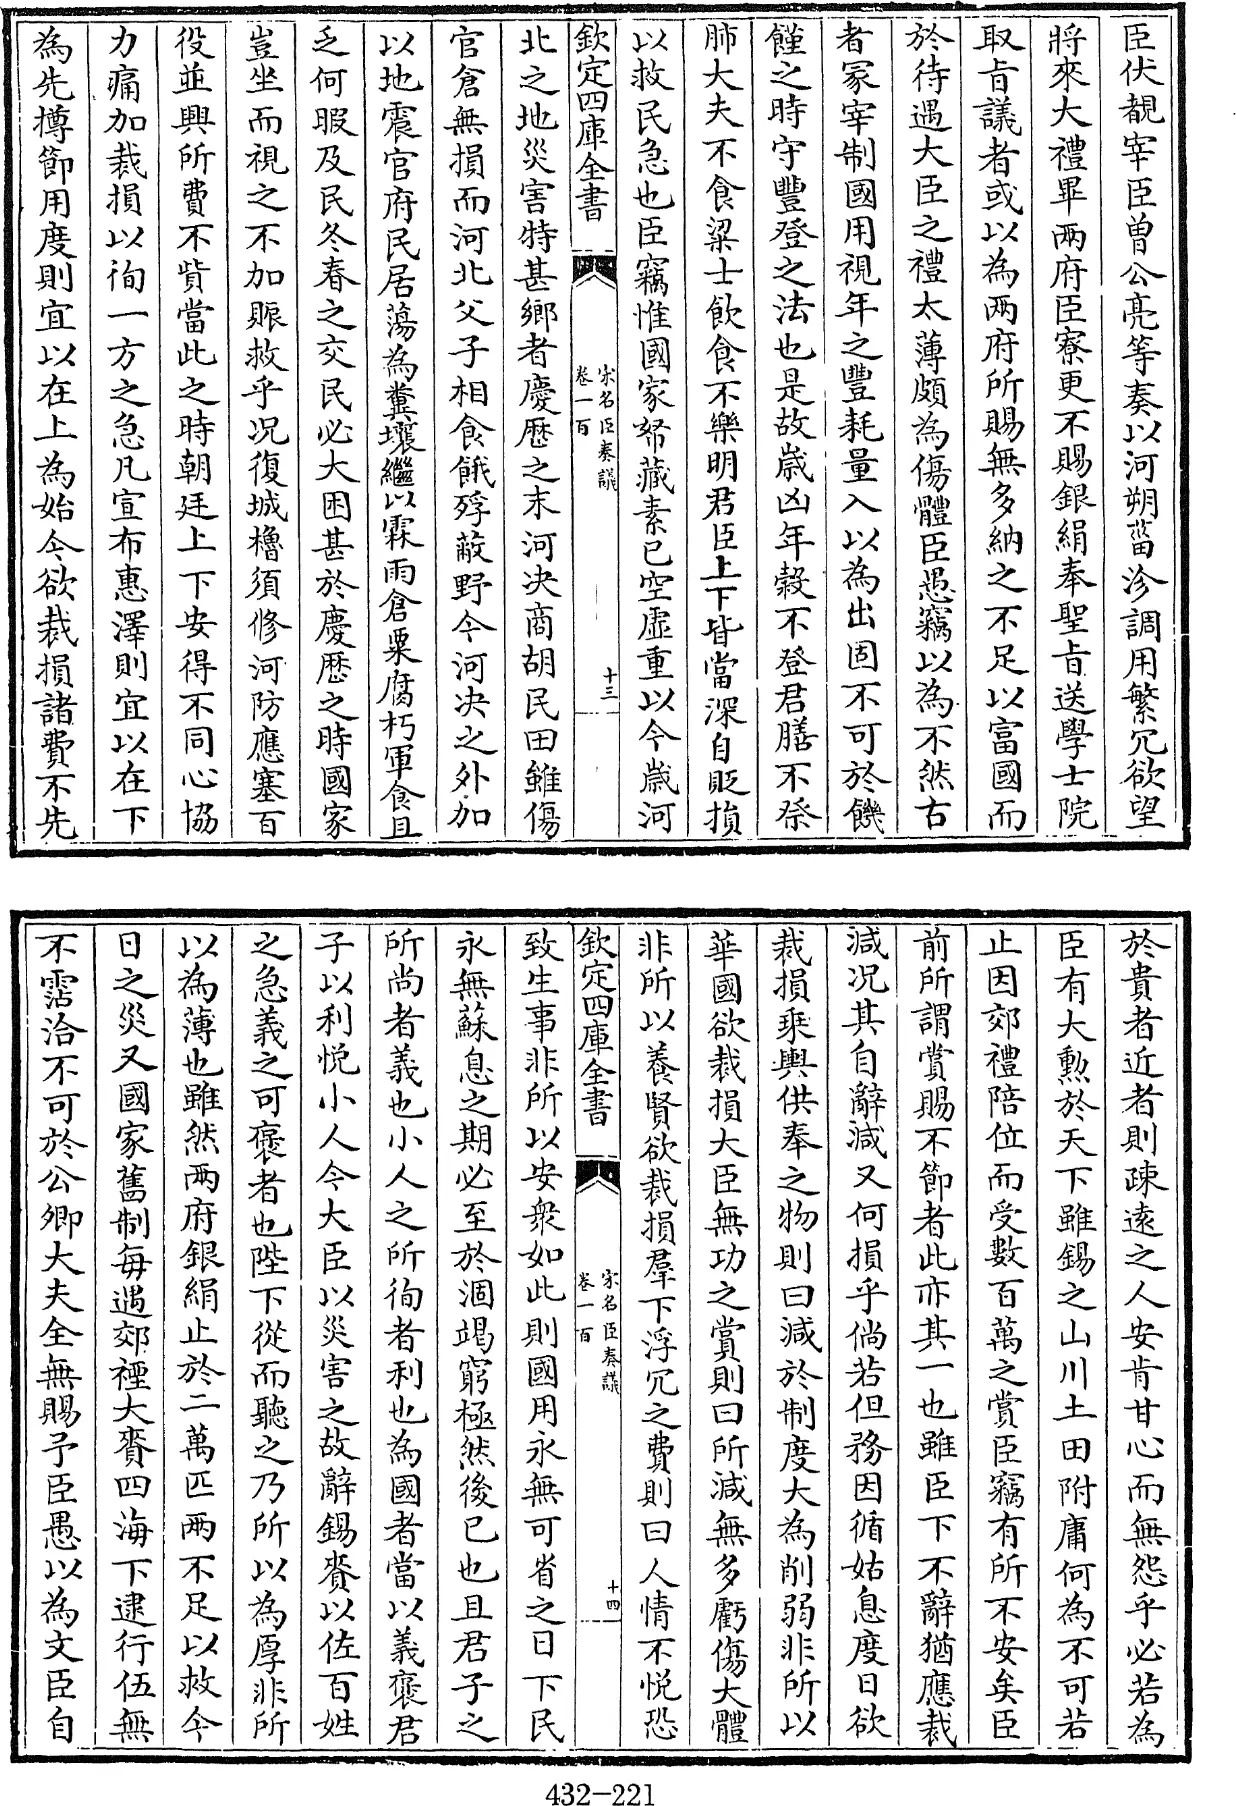 臣伏覩宰臣曾公亮等奏以河朔菑沴調用繁冗欲望
將來大禮畢兩府臣寮更不賜銀絹奉聖㫖送學士院
取㫖議者或以為兩府所賜無多納之不足以富國而
於待遇大臣之禮太薄頗為傷體臣愚竊以為不然古
者冢宰制國用視年之豐耗量入以為出固不可於饑
饉之時守豐登之法也是故歳凶年穀不登君膳不祭
肺大夫不食粱士飲食不樂明君臣上下皆當深自貶損
以救民急也臣竊惟國家帑藏素已空虛重以今歳河
欽定四庫全書
宋名臣奏議
卷一百
十三
北之地災害特甚鄉者慶歷之末河決商胡民田雖傷
官倉無損而河北父子相食餓殍蔽野今河決之外加
以地震官府民居蕩為糞壤繼以霖雨倉粟腐朽軍食且
乏何暇及民冬春之交民必大困甚於慶歷之時國家
豈坐而視之不加賑救乎况復城櫓須修河防應塞百
役並興所費不貲當此之時朝廷上下安得不同心協
力痛加裁損以徇一方之急凡宣布惠澤則宜以在下
為先撙節用度則宜以在上為始今欲裁損諸費不先
於貴者近者則疎逺之人安肯甘心而無怨乎必若為
臣有大勲於天下雖錫之山川土田附庸何為不可若
止因郊禮陪位而受數百萬之賞臣竊有所不安矣臣
前所謂賞賜不節者此亦其一也雖臣下不辭猶應裁
減况其自辭減又何損乎倘若但務因循姑息度日欲
裁損乘輿供奉之物則曰減於制度大為削弱非所以
華國欲裁損大臣無功之賞則曰所減無多虧傷大體
非所以養賢欲裁損羣下浮冗之費則曰人情不悦恐
欽定四庫全書
宋名臣奏議
卷一百
十四
致生事非所以安衆如此則國用永無可省之日下民
永無蘇息之期必至於涸竭窮極然後已也且君子之
所尚者義也小人之所徇者利也為國者當以義褒君
子以利悦小人今大臣以災害之故辭錫賚以佐百姓
之急義之可褒者也陛下從而聽之乃所以為厚非所
以為薄也雖然兩府銀絹止於二萬匹兩不足以救今
日之災又國家舊制每遇郊禋大賚四海下逮行伍無
不霑洽不可於公卿大夫全無賜予臣愚以為文臣自
432-221